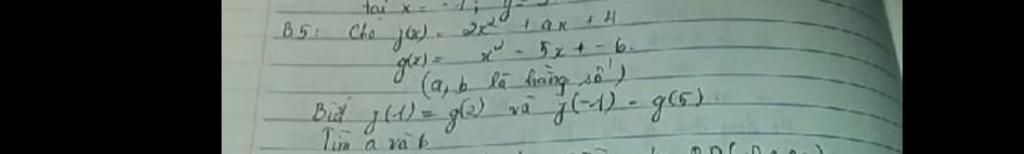 tại x = -1; y
B5: Cho f(x) = 2x² + ax + 4
g(x) = x² - 5x + - b.
(a, b là hằng số)
Biết f(1) = g(2) và f(-1) = g(5)
Tìm a và b